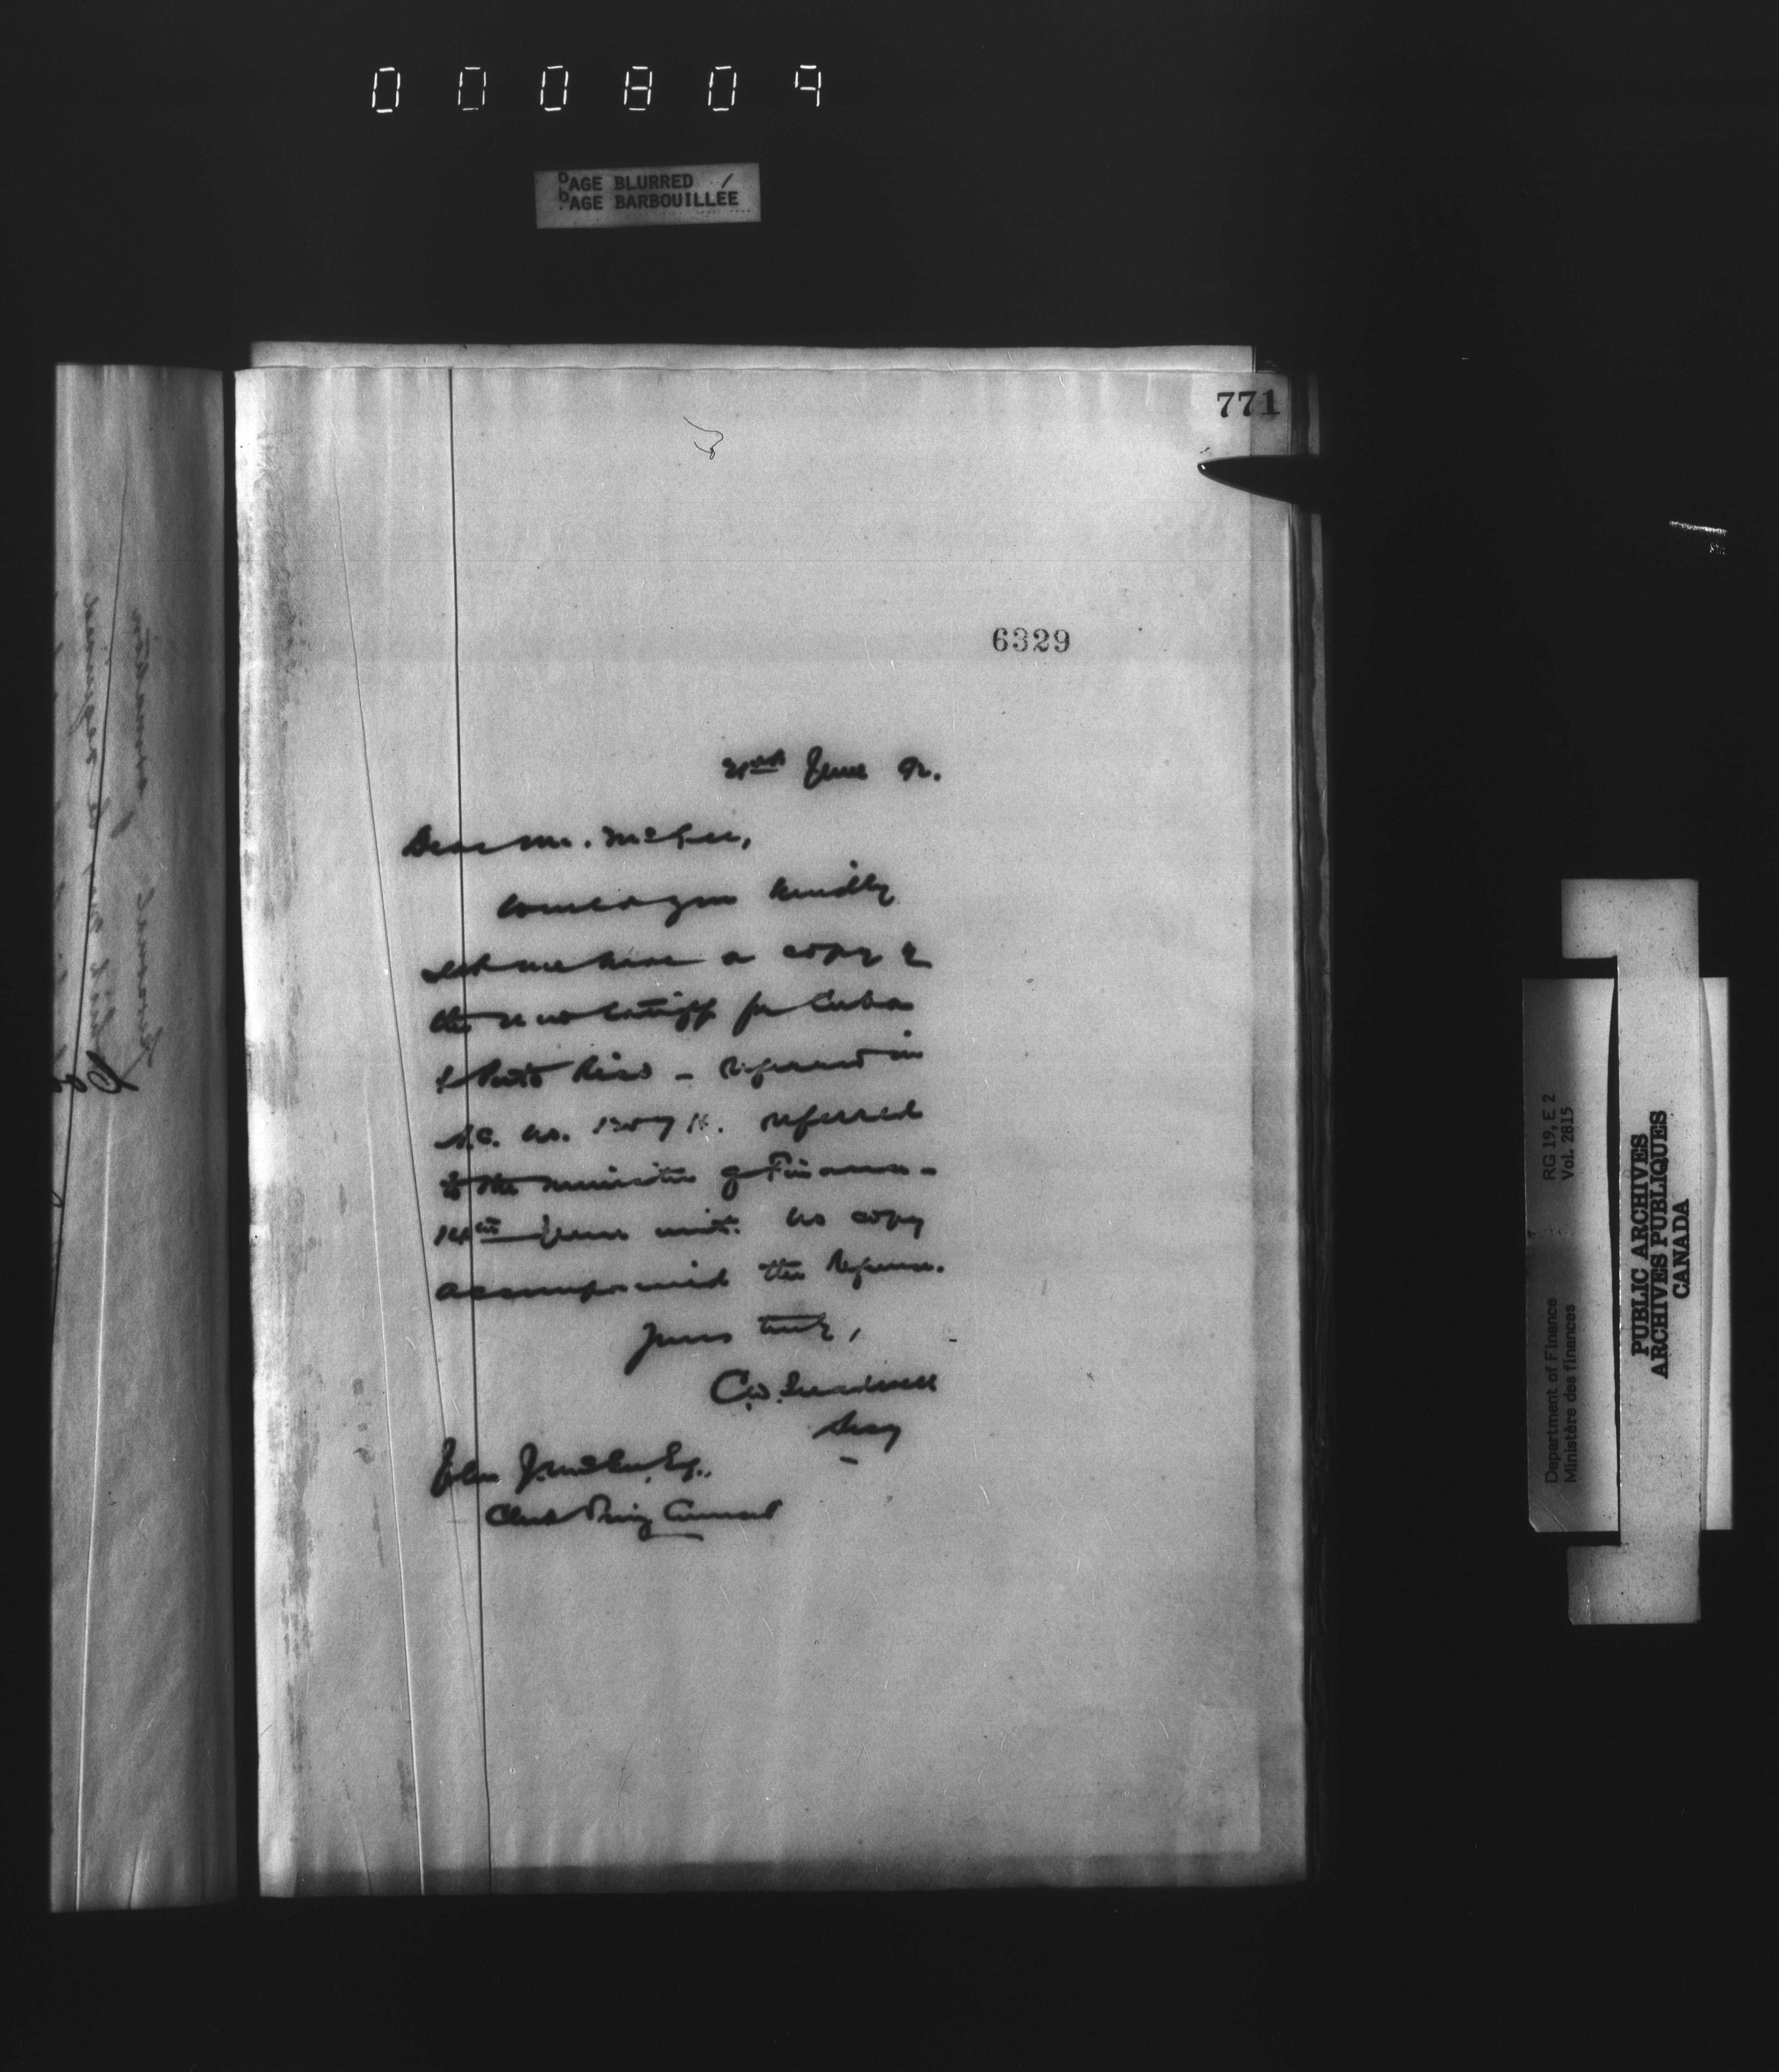 000809
PAGE BLURRED
PAGE BARBOUILLÉE
771
6329
June 92.
Dear Mr. McGee,
Would you kindly
let me have a copy of
the new tariff for Cuba
& Porto Rico – referred in
P.C. No. referred
to the Minister of Finance –
14th June inst. No copy
accompanied the reference.
Yours truly,
C.W. Treadwell
Secy
John J. McGee, Esq.,
Clerk Privy Council
Department of Finance
Ministère des finances
RG 19, E 2
Vol. 2815
PUBLIC ARCHIVES
ARCHIVES PUBLIQUES
CANADA